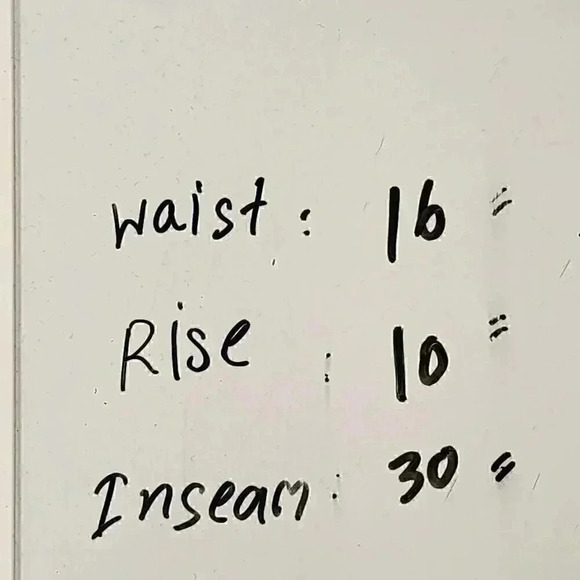 Waist : 16 "
Rise : 10 "
Inseam : 30 "